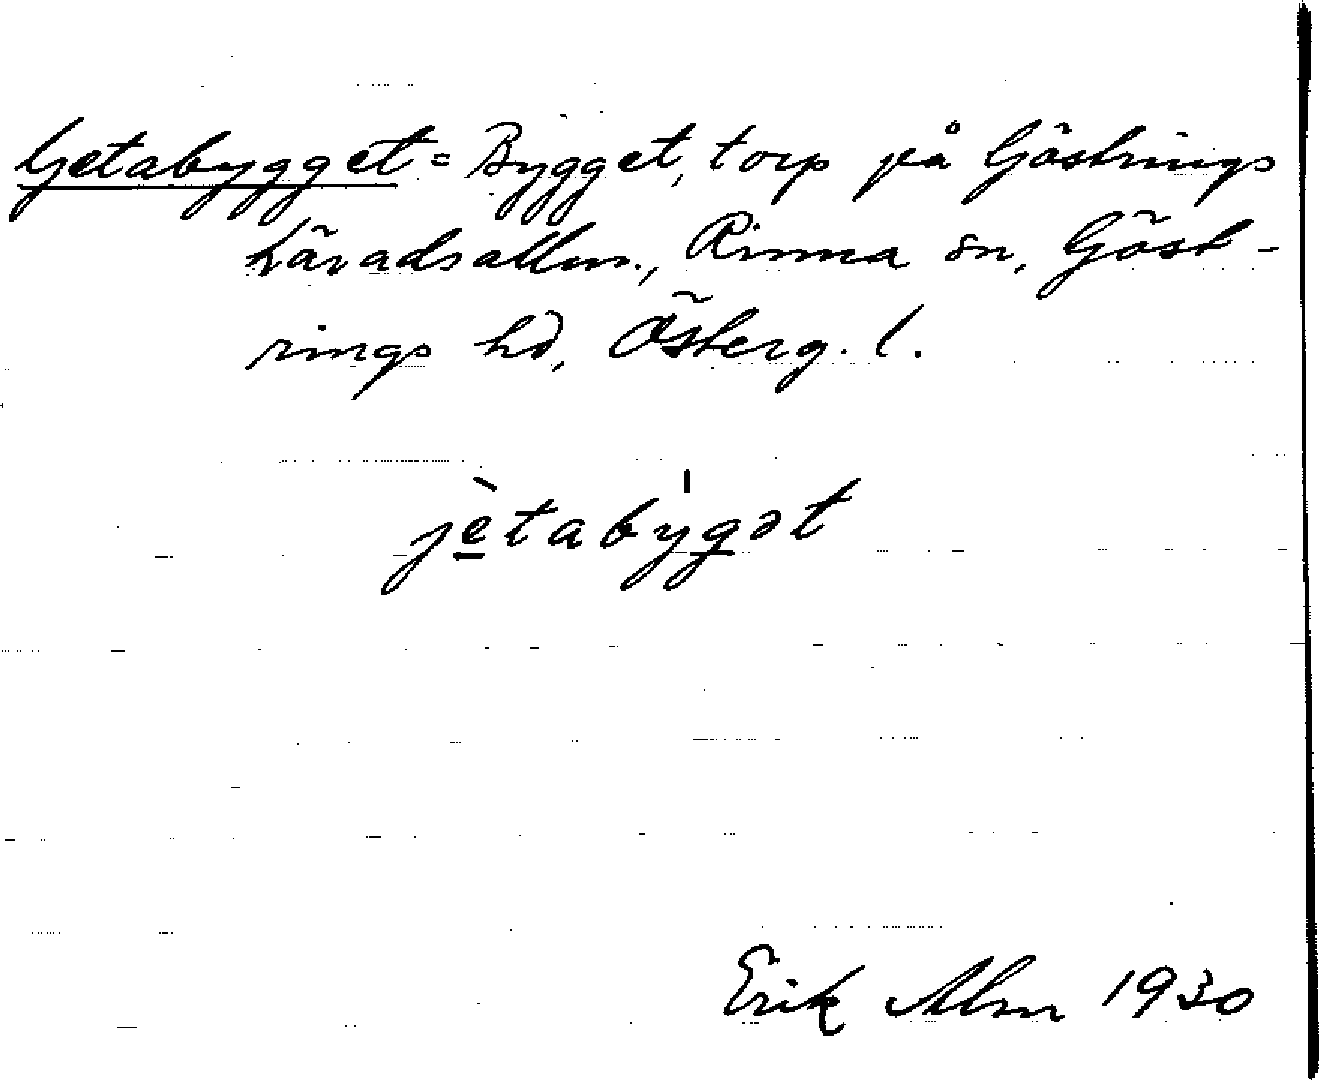 Getabygget = Bygget, torp på Göstrings
häradsallm., Rinna sn, Göst-
rings hd, Österg. l.
jètabýgət
Erik Alm 1930